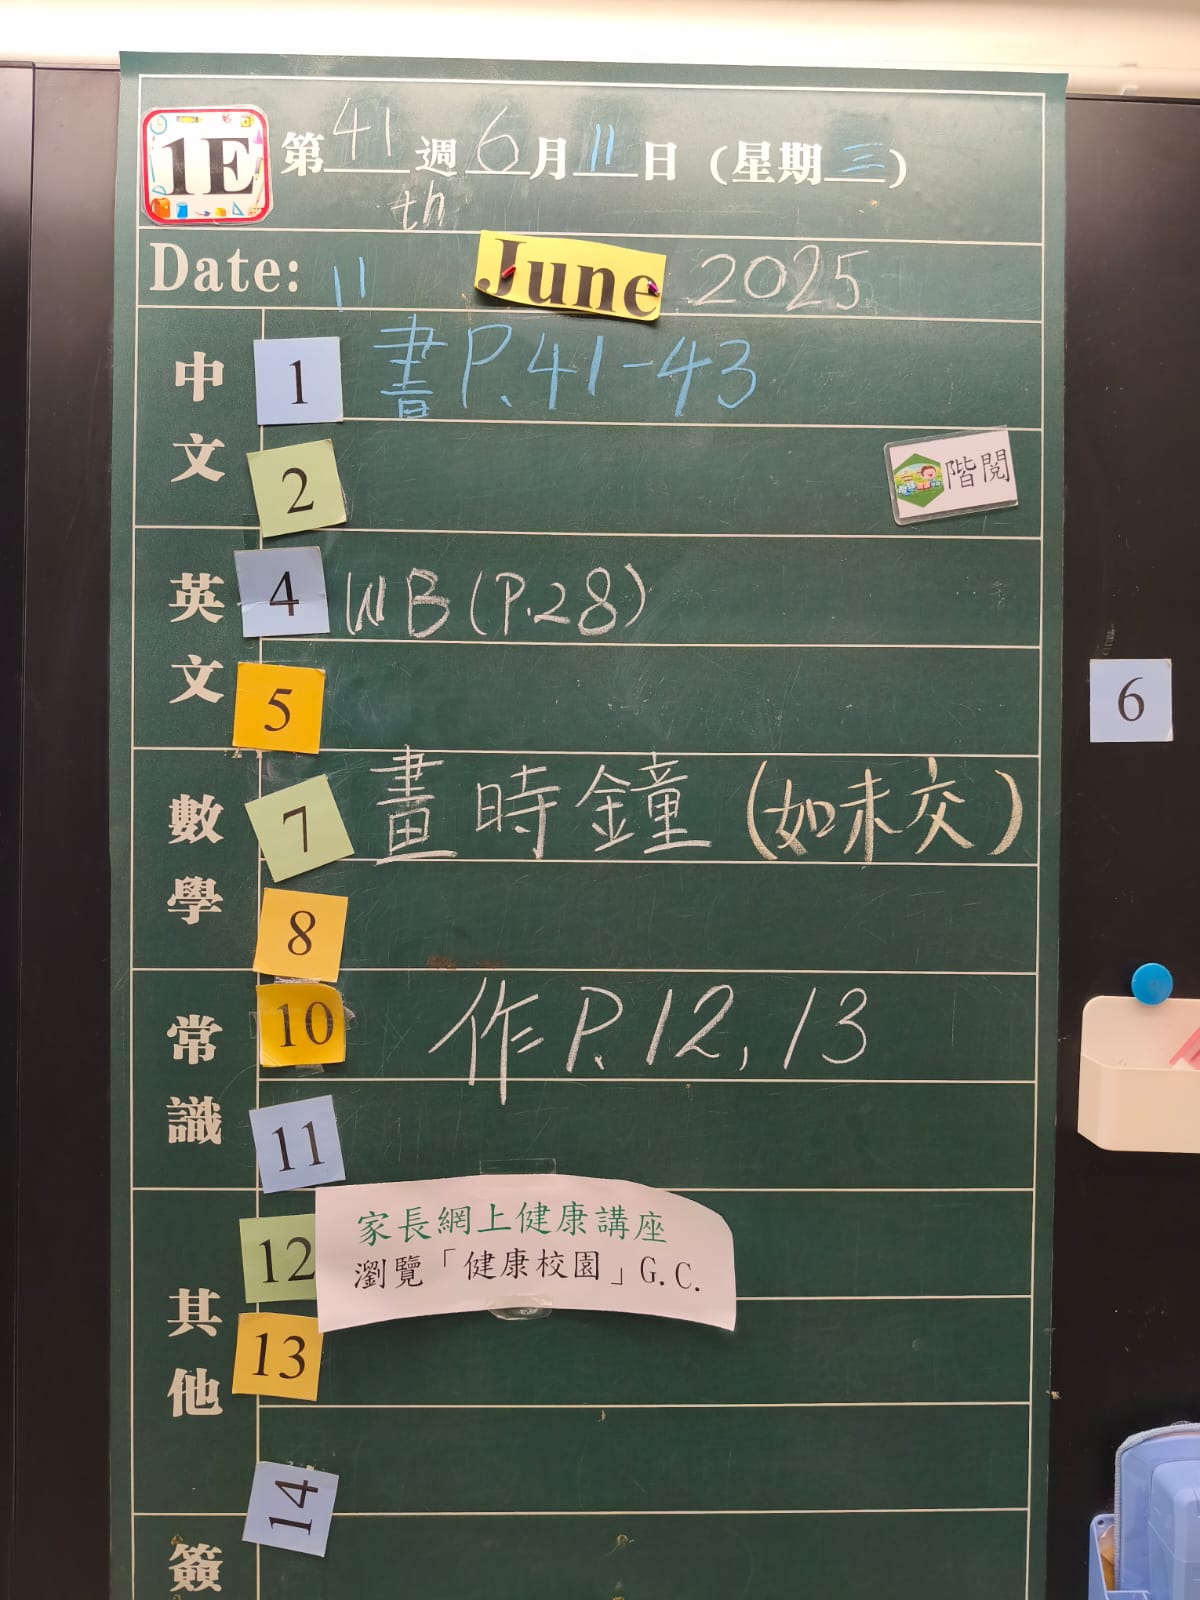 1E 第41週6月11日(星期三)
th
Date: 11 June 2025
中文
1 書P.41-43
2 階閱
英文
4 WB(P.28)
5
6
數學
7 畫時鐘(如未交)
8
常識
10 作P.12,13
11
其他
12 家長網上健康講座
瀏覽「健康校園」G.C.
13
14
簽